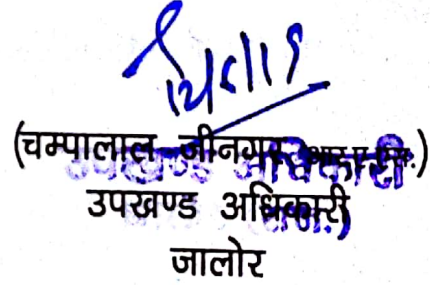 12/6/19
(चम्पालाल जीनगर आर.ए.एस.)
उपखण्ड अधिकारी
जालोर